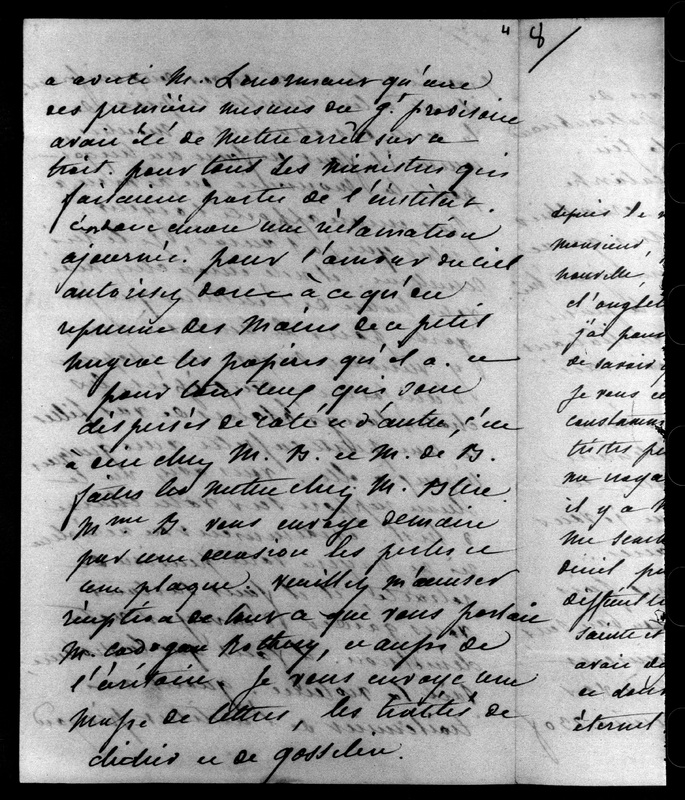 " 8/
a averti M. Lenormant qu'une
des premières mesures du gt. provisoire
avait été de mettre arrêt sur ce
trait. pour tous les ministres qui
faisaient partie de l'institut.
c'est encore une réclamation
ajournée. pour l'amour du ciel
autorisez donc à ce qu'on
reprenne des mains de ce petit
les papiers qu'il a. et
pour tous ceux qui sont
dispersés de coté et d'autre, s'en
a chez M. B. et M. de B.
faites les mettre chez M. Blin.
Mme B. vous envoye demain
par une occasion les perles et
une plaque, veuillez m'accuser
réception de tout ce que vous portait
M. cadogan Rothery, et aussi de
l'écritoire. Je vous envoye une
masse de lettres, les traités de
didier et de gosselin.
depuis le
monsieur,
nouvelle,
et d'anglet
j'ai pens
de savoir
je vous
constamm
tristes pe
me
il y a
me sembl
deuil
difficul
sainte et
avait
et dou
éternel